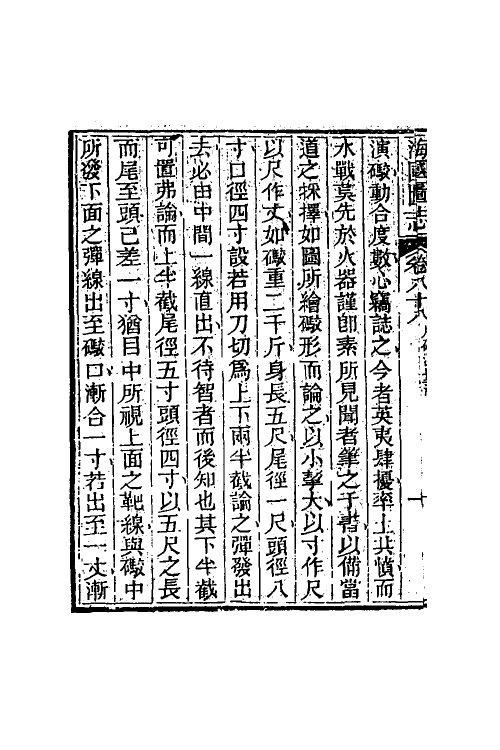 海國圖志
卷八十八
演礮動合度數心竊誌之今者英夷肆擾率土共憤而
水戰莫先於火器謹即素所見聞者筆之于書以備當
道之採擇如圖所繪礮形而論之以小擊大以寸作尺
以尺作丈如礮重二千斤身長五尺尾徑一尺頭徑八
寸口徑四寸設若用刀切爲上下兩半截論之彈發出
去必由中間一線直出不待智者而後知也其下半截
可置弗論而上半截尾徑五寸頭徑四寸以五尺之長
而尾至頭已差一寸猶目中所視上面之靶線與礮中
所發下面之彈線出至礮口漸合一寸若出至一丈漸